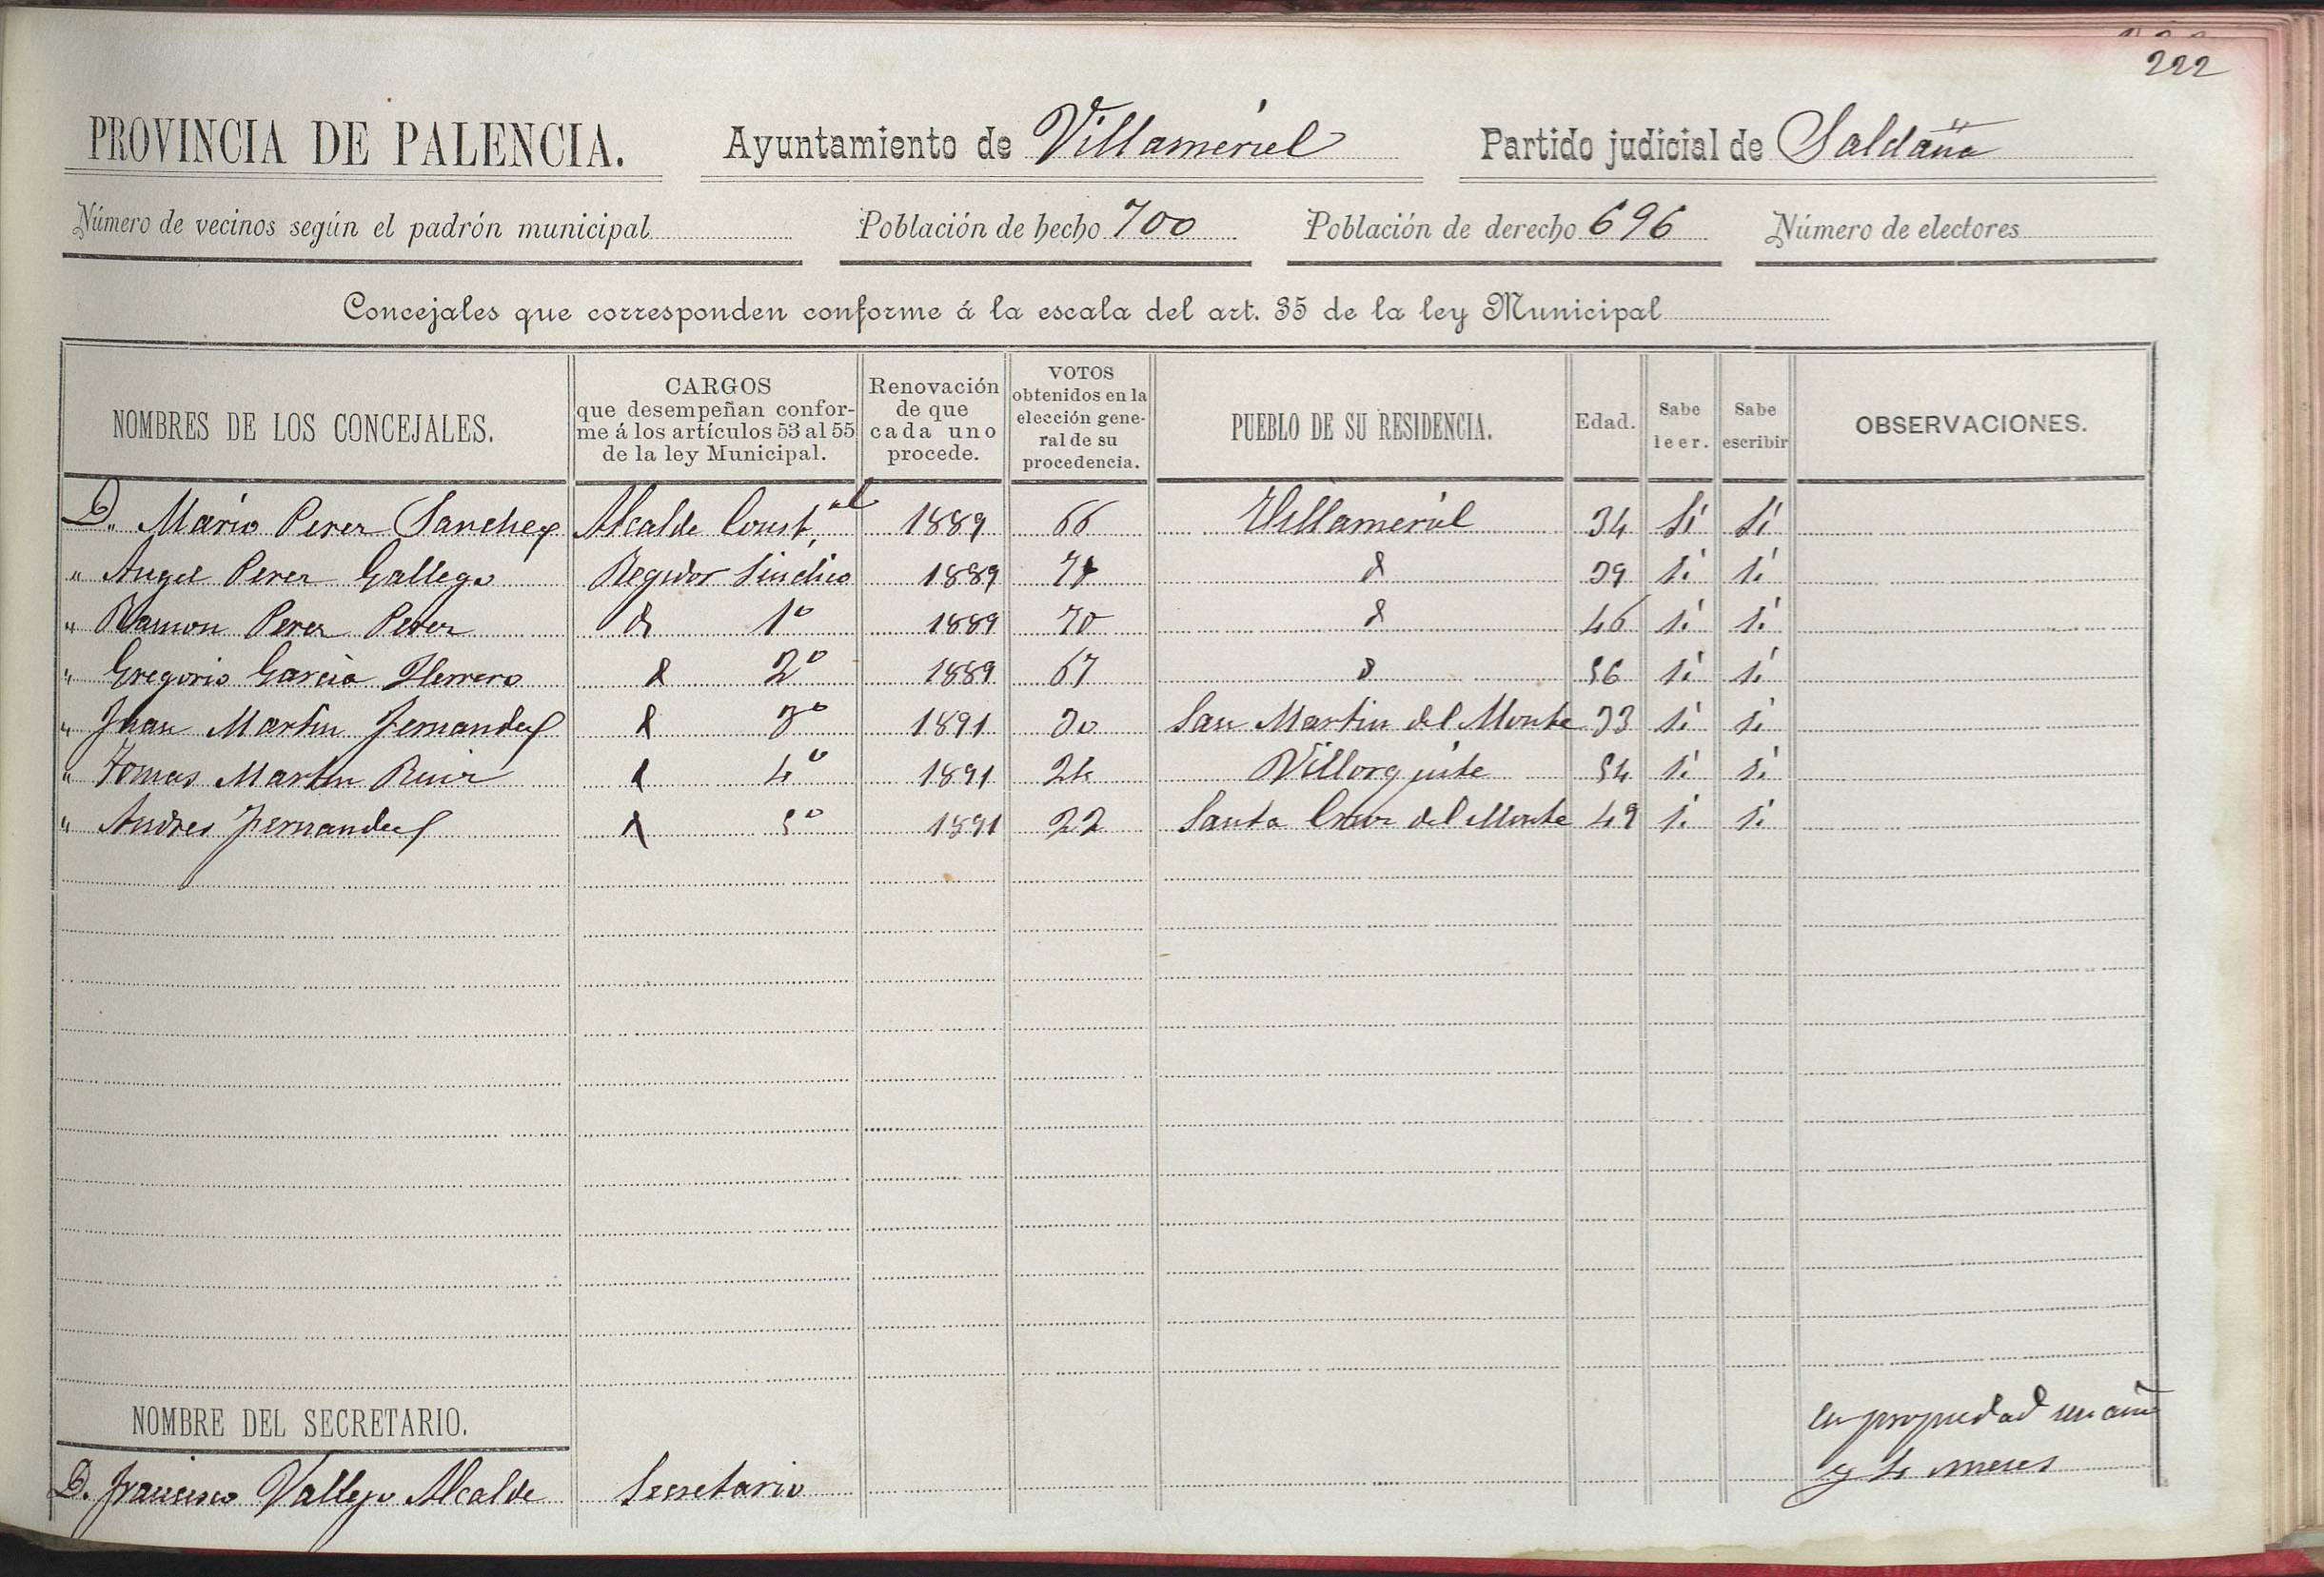 222
PROVINCIA DE PALENCIA. Ayuntamiento de Villameriel Partido judicial de Saldaña
Número de vecinos según el padrón municipal Población de hecho 700 Población de derecho 696 Número de electores
Concejales que corresponden conforme á la escala del art. 35 de la ley Municipal
NOMBRES DE LOS CONCEJALES.
CARGOS
que desempeñan confor-
me á los artículos 53 al 55
de la ley Municipal.
Renovación
de que
cada uno
procede.
VOTOS
obtenidos en la
elección gene-
ral de su
procedencia.
PUEBLO DE SU RESIDENCIA.
Edad.
Sabe
leer.
Sabe
escribir
OBSERVACIONES.
D. Mario Perez Sanchez Alcalde Const.al 1889 66 Villameriel 34 Sí Sí
" Angel Perez Gallego Regidor Sindico 1889 d 39 sí sí
" Ramon Perez Perez d 1º 1889 70 d 46 sí sí
" Gregorio García Herrero d 2º 1889 67 d 56 sí sí
" Juan Martin Fernandez d 3º 1891 30 San Martin del Monte 33 sí sí
" Tomas Martin Ruiz d 4º 1891 24 Villorquite 54 sí sí
" Andres Fernandez d 5º 1891 22 Santa Cruz del Monte 49 sí sí
NOMBRE DEL SECRETARIO.
D. Francisco Vallejo Alcalde Secretario
en propiedad un año
y 4 meses